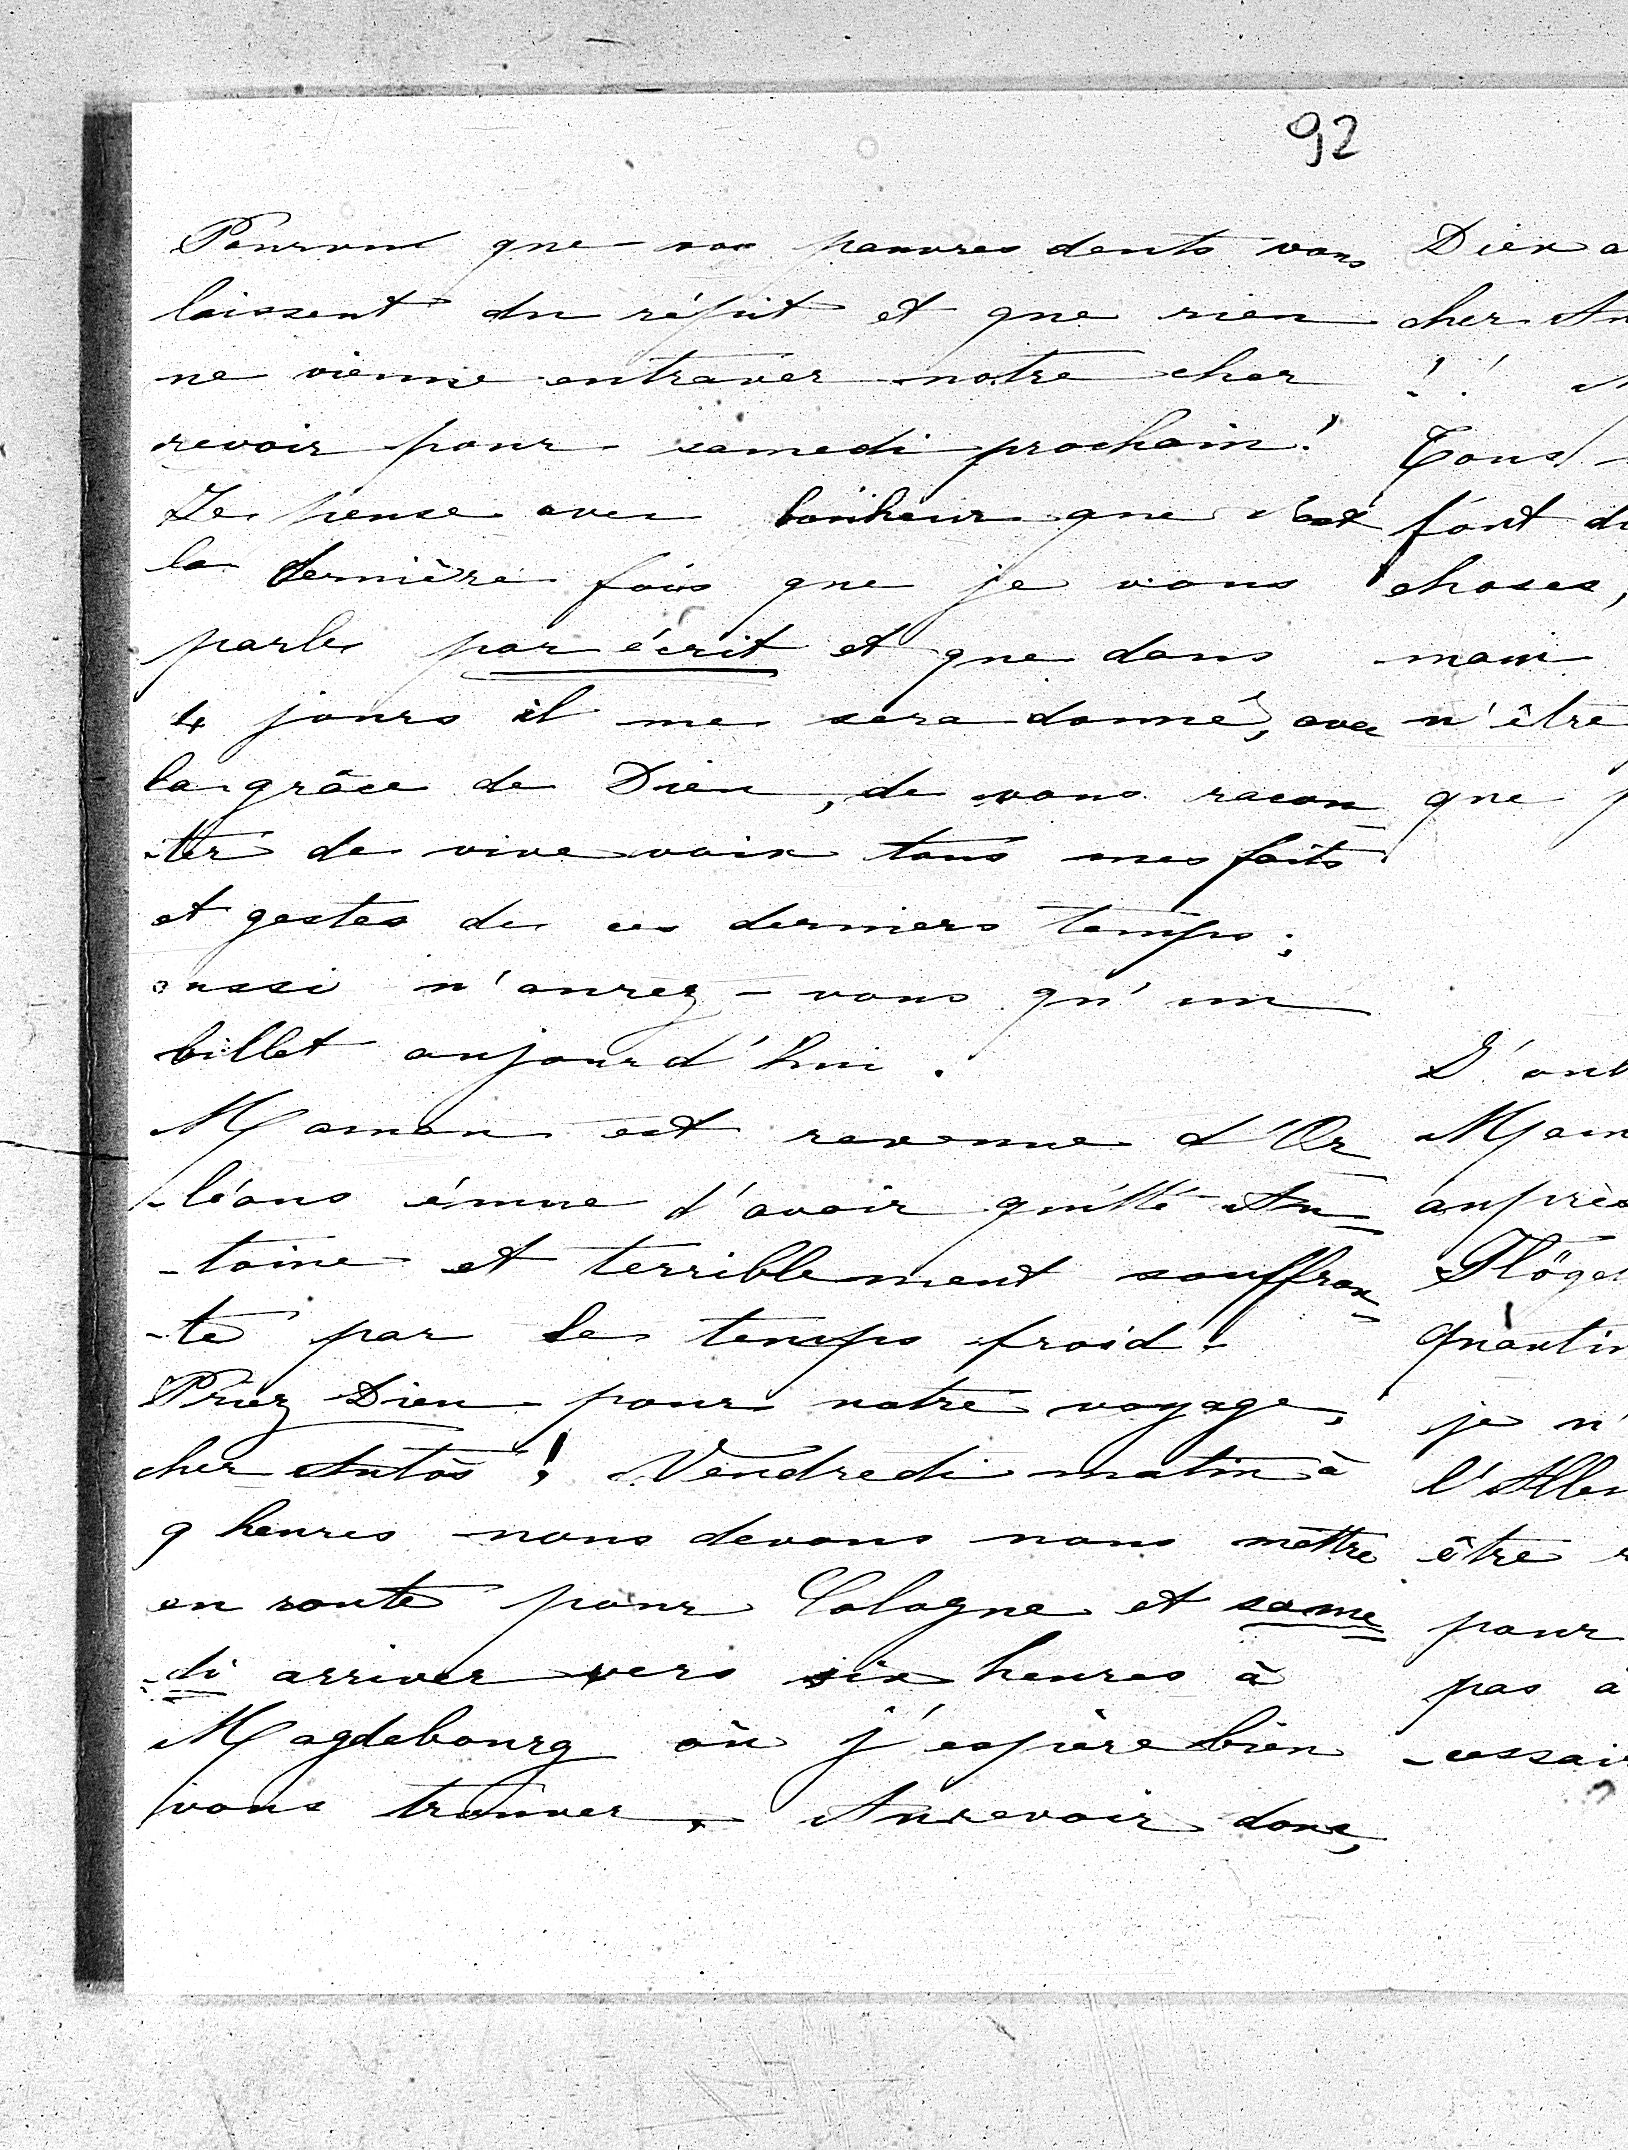 92
Pourvu que vos pauvres dents vous
laissent du répit et que rien
ne vienne entraver notre cher
revoir pour samedi prochain!
Je pense avec bonheur que c'est
la dernière fois que je vous
parle par écrit et que dans
4 jours il me sera donné, avec
la grâce de Dieu, de vous racon-
-ter de vive voix tous mes faits
et gestes de ces derniers temps;
aussi n'aurez-vous qu'un
billet aujourd'hui.
Maman est revenue d'Or-
-léans émue d'avoir quitté An-
-toine et terriblement souffran-
-te par le temps froid.
Priez Dieu pour notre voyage,
cher Antos! Vendredi matin à
9 heures nous devons nous mettre
en route pour Cologne et same-
-di arriver vers six heures à
Magdebourg où j'espère bien
vous trouver. Au revoir donc,
Dieu a
cher An
!!
Tous
font d
choses,
main
n'être
que p
D'ant
Mam
auprès
Flöge
quantin
je n'
l'Allem
être
pour
pas à
-cessair